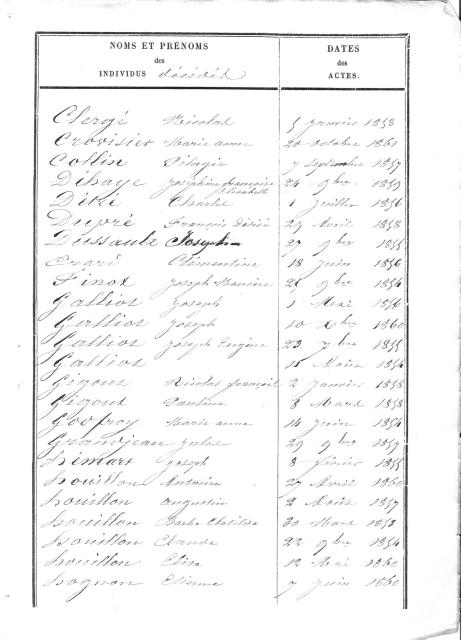 NOMS ET PRÉNOMS
des
INDIVIDUS décédés
DATES
des
ACTES.
Clergé Nicolas 5 Janvier 1858
Crovisier Marie anne 20 octobre 1861
Collin Pélagie 7 septembre 1857
Déhaye Joséphine françoise Elisabeth 24 9bre 1859
Charles 1 Juillet 1856
Dupré François Désiré 29 Avril 1858
Dussaulx Joseph 27 9bre 1855
Erard Clémentine 18 Juin 1856
Finot Joseph Maurice 9bre 1854
Galliot Joseph 1 Mai 1856
Galliot Joseph 10 Xbre 1860
Galliot Joseph Eugène 23 7bre 1855
Galliot 15 Août 1854
Gigout Nicolas françois 2 Janvier 1858
Gigout Pauline 8 Mars 1858
Godfroy Marie anne 14 Juin 1854
Grandjean Jules 29 9bre 1857
hémart Joseph 8 février 1855
houillon Antoine 27 Avril 1860
houillon augustin 2 Août 1857
houillon Barbe Clotilde 30 Mars 1853
houillon Claude 22 9bre 1854
houillon 12 Mai 1860
hognon Etienne 7 Juin 1860